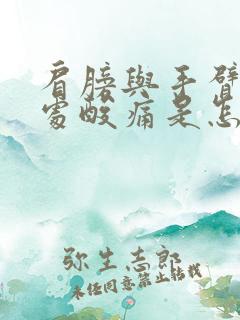 肩膀與手臂
處酸痛是怎
弥生志郎
未经同意禁止转载